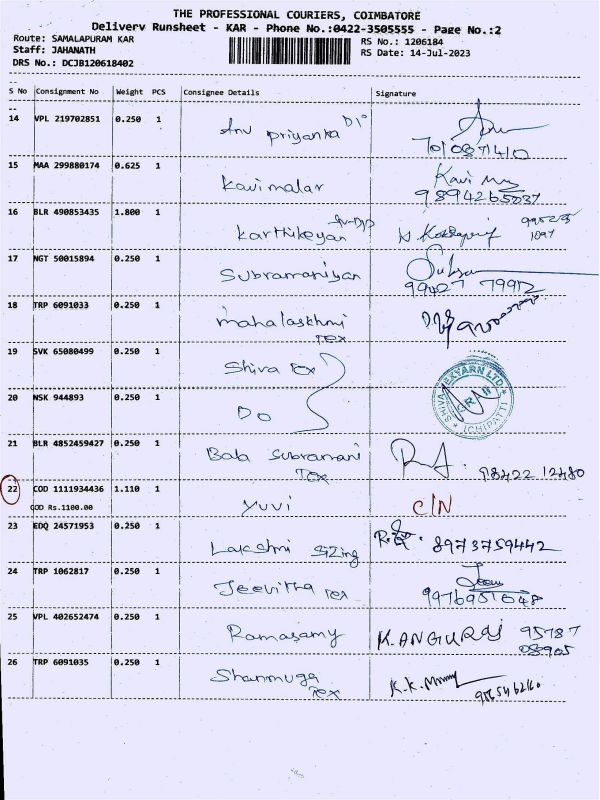 THE PROFESSIONAL COURIERS, COIMBATORE
Delivery Runsheet - KAR - Phone No.:0422-3505555 - Page No.:2
Route: SAMALAPURAM KAR
RS No.: 1206184
Staff: JAHANATH
RS Date: 14-Jul-2023
DRS No.: DCJB120618402
S No Consignment No Weight PCS Consignee Details Signature
14 VPL 219702851 0.250 1 Anu priyanka
7010871410
15 MAA 299880174 0.625 1 Kavimalar Kavi
9894265037
16 BLR 490853435 1.800 1 Karthikeyan
17 NGT 50015894 0.250 1 Subramaniyan
99427 79912
18 TRP 6091033 0.250 1 mahalaskhmi Tex
19 SVK 65080499 0.250 1 Shiva Tex
20 NSK 944893 0.250 1 DO
SHIVA TEXYARN LTD
ICHIPATTI
21 BLR 4852459427 0.250 1 Bala Subramani Tex
98422 12480
22 COD 1111934436 1.110 1 yuvi C/N
COD Rs.1100.00
23 EDQ 24571953 0.250 1 Lakshmi Sizing 8973759442
24 TRP 1062817 0.250 1 Jeevitha Tex
9976951048
25 VPL 402652474 0.250 1 Ramasamy K.ANGURAJ 95787
08905
26 TRP 6091035 0.250 1 Shanmuga Tex